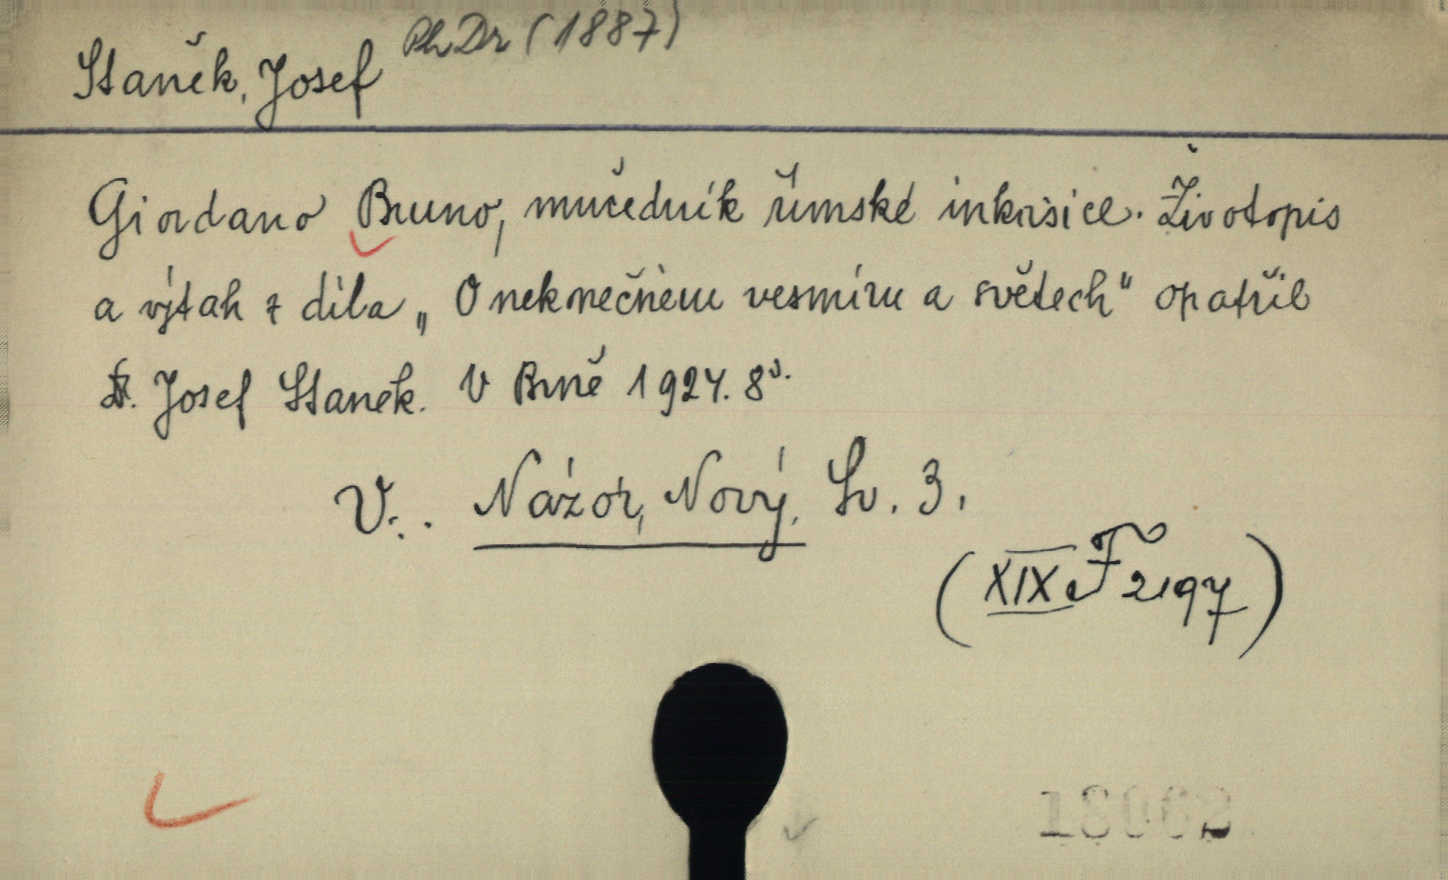 Staněk, Josef PhDr (1887)
Giordano Bruno, mučedník římské inkvisice. Životopis
a výtah z díla „O nekonečném vesmíru a světech" opatřil
Dr. Josef Staněk. V Brně 1924. 8°.
V.. Názor, Nový. Sv. 3.
(XIX F 2197)
18062